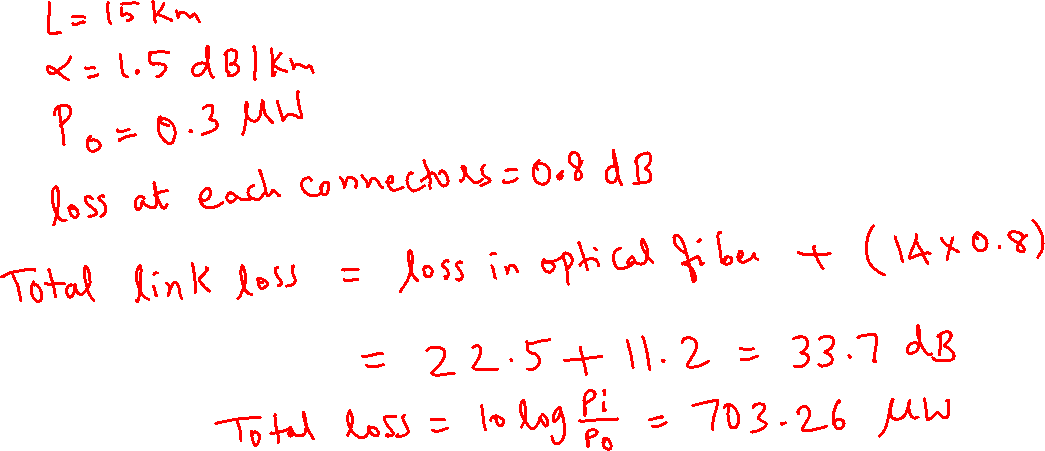 L = 15 Km
α = 1.5 dB/Km
P₀ = 0.3 μW
loss at each connectors = 0.8 dB
Total link loss = loss in optical fiber + (14 × 0.8)
= 22.5 + 11.2 = 33.7 dB
Total loss = 10 log Pi/P₀ = 703.26 μW